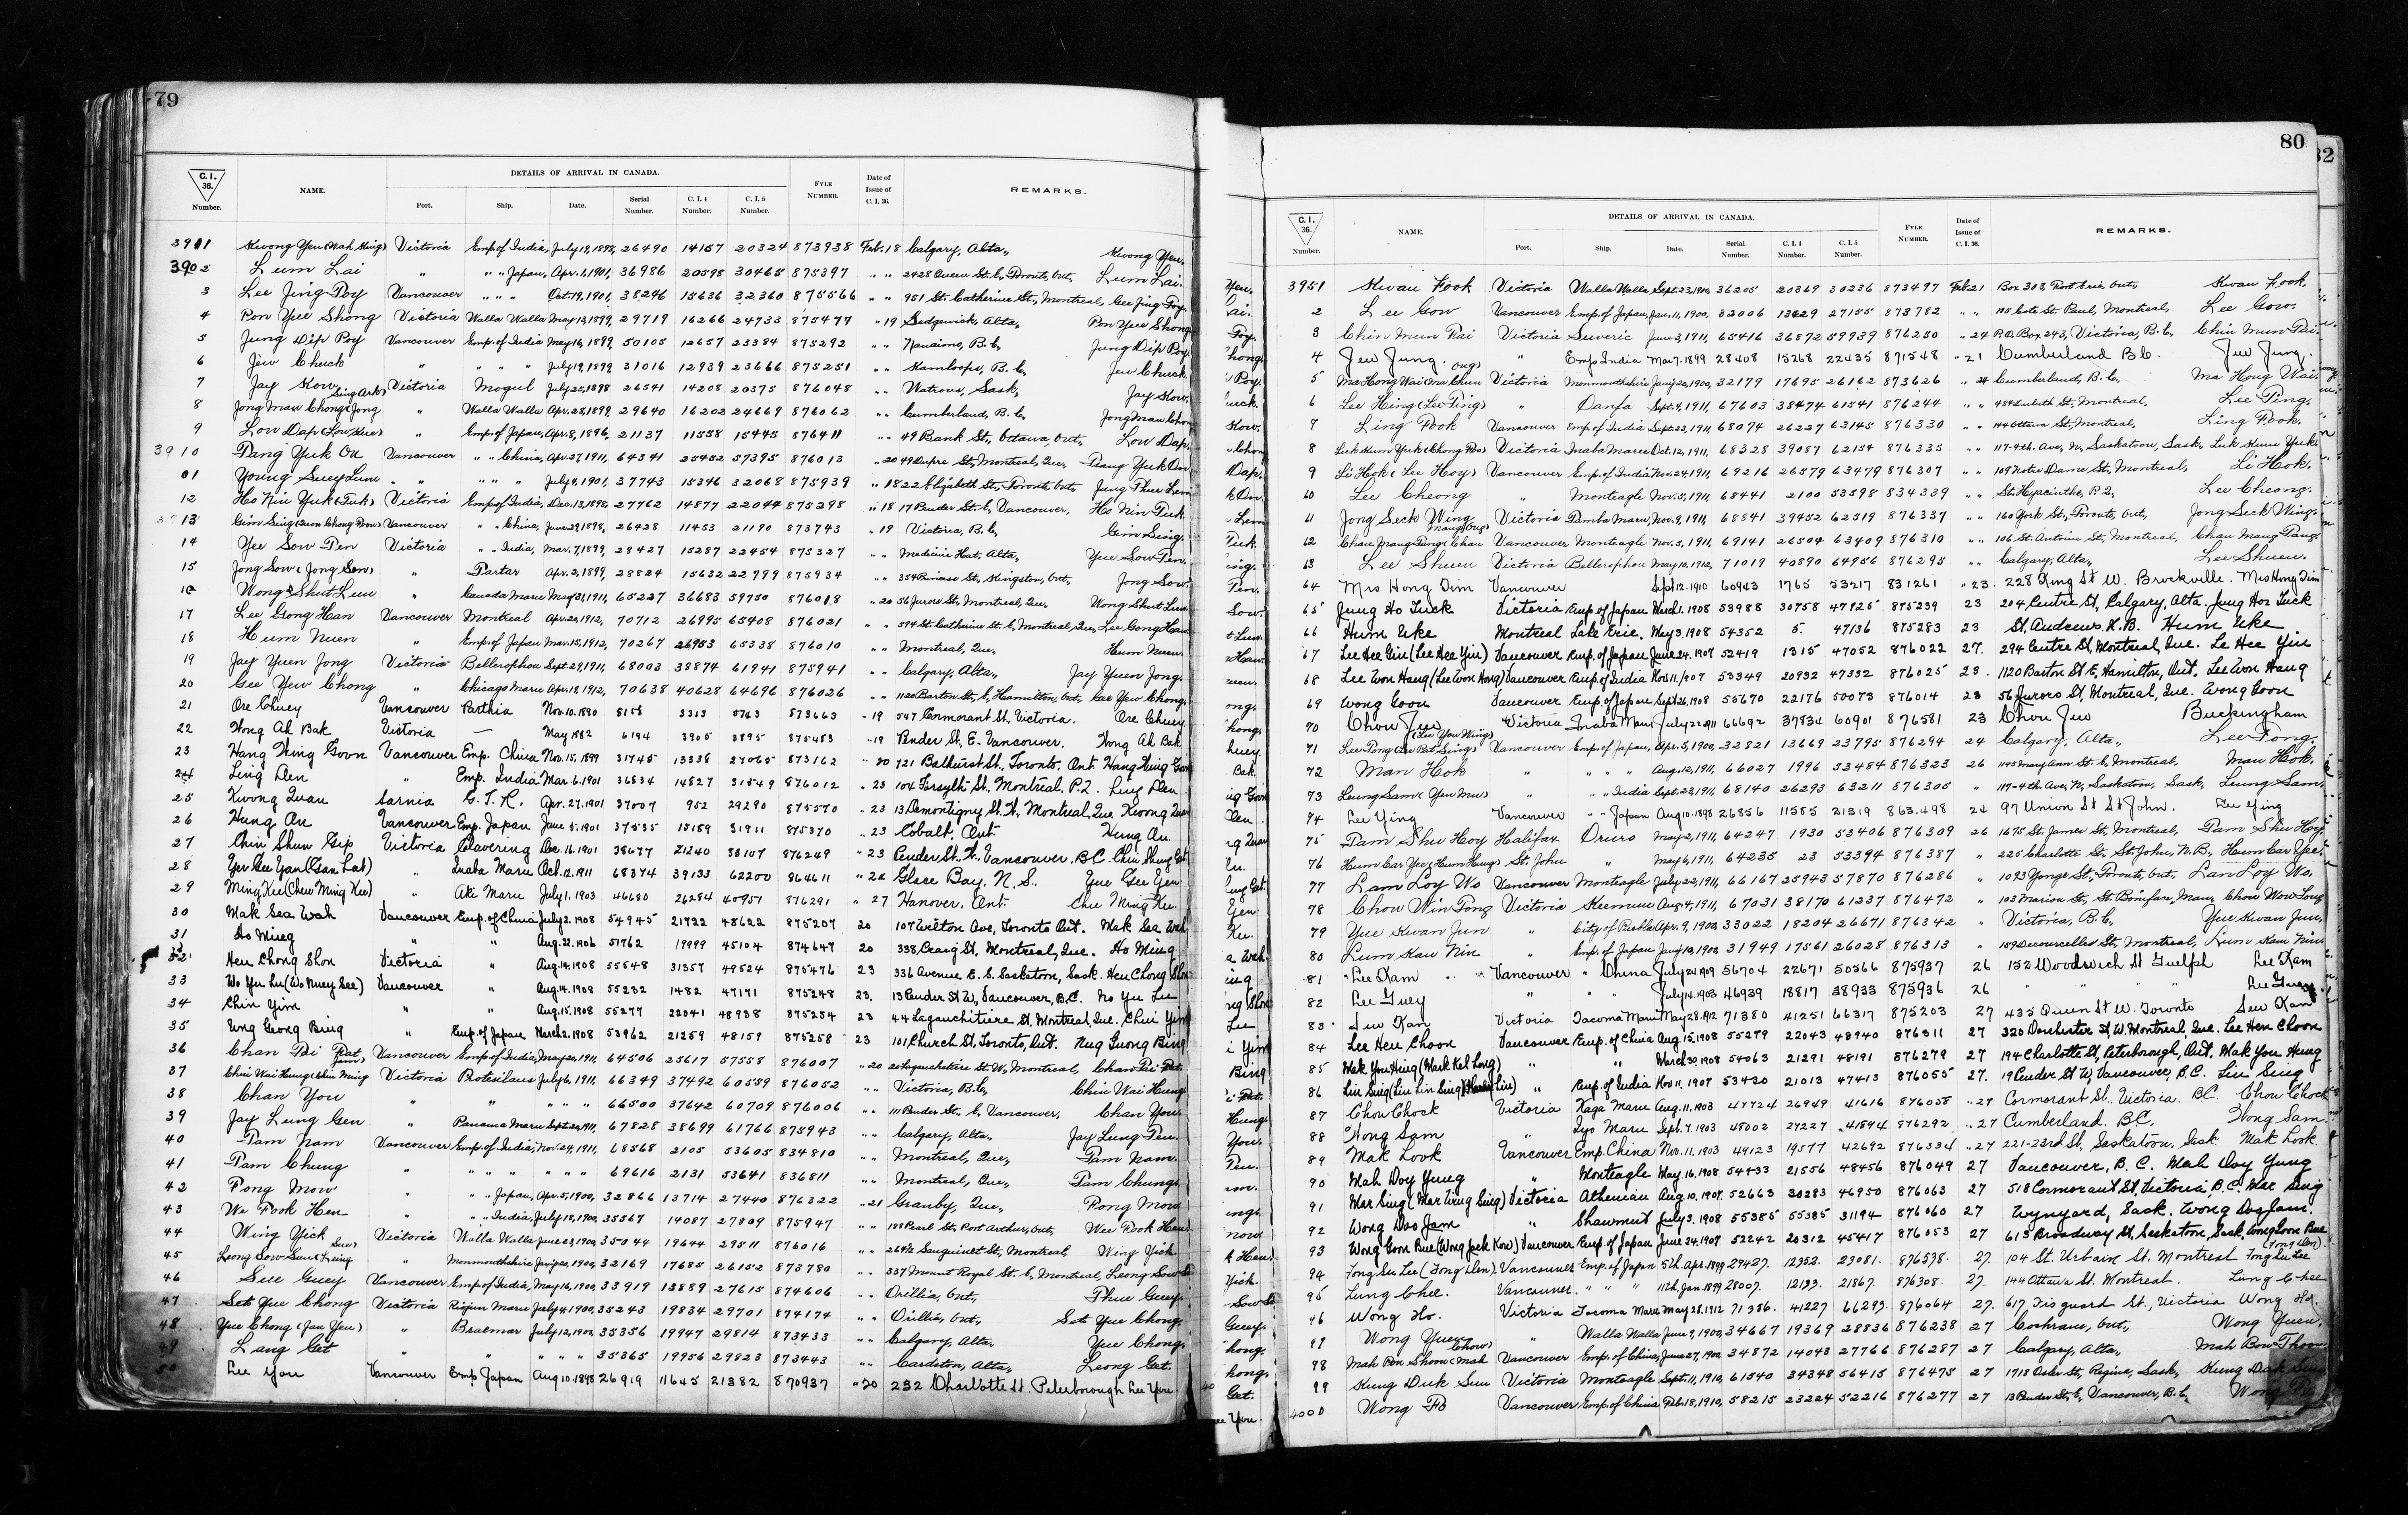 79
C.I. 36. Number.
NAME.
DETAILS OF ARRIVAL IN CANADA.
Port.
Ship.
Date.
Serial Number.
C. I. 4 Number.
C. I. 5 Number.
FYLE NUMBER.
Date of Issue of C. I. 36.
REMARKS.
3901 Kwong Yeu (Wah Hing) Victoria Emp of India, July 19, 1898, 26490 14157 20324 873938 Feb. 18 Calgary, Alta., Kwong Yeu.
3902 Lum Lai " " " Japan, Apr. 1, 1901, 36986 20598 30465 875397 " " 2428 Queen St. E, Toronto, Ont. Lum Lai.
3 Lee Jing Poy Vancouver " " " Oct. 19, 1901, 38246 15636 32360 875566 " " 951 St. Catherine St., Montreal, Lee Jing Poy.
4 Pon Yue Shong Victoria Walla Walla May 13, 1899, 29719 16266 24733 875477 " 19 Sedgewick, Alta., Pon Yue Shong
5 Jung Dip Poy Vancouver Emp. of India May 16, 1899, 50105 12657 23384 875292 " " Nanaimo, B.C. Jung Dip Poy.
6 Jew Chuck " " " " July 19, 1899, 31016 12939 23666 875251 " " Kamloops, B.C., Jew Chuck.
7 Jay Kow Victoria Mogul July 25, 1898 26541 14208 20375 876048 " " Watrous, Sask, Jay Kow.
8 Jong Mau Chong (Jong Sing Ark) " Walla Walla Apr. 28, 1899, 29640 16202 24669 876062 " " Cumberland, B.C. Jong Mau Chon
9 Low Dap (Low Kue) " Emp. of Japan, Apr. 8, 1896, 21137 11558 15445 876411 " " 49 Bank St., Ottawa, Ont., Low Dap.
3910 Pang Yuk On Vancouver " " China, Apr. 27, 1911, 64341 25452 57395 876013 " 20 49 Dupre St., Montreal, Que. Pang Yuk On
01 Young Suey Lum " " " " July 9, 1901, 37743 15346 32068 875939 " 18 22 Elizabeth St., Toronto Ont. Jung Thue Lem
12 Ho Nin Yuk (Tuk) Victoria Emp of India, Dec. 13, 1898, 27762 14877 22044 875298 " 18 17 Pender St. E, Vancouver, Ho Nin Tuk
13 Gim Sing (Quon Chong Poon) Vancouver " " China, June 29, 1898, 26428 11453 21190 873743 " 19 Victoria, B.C. Gim Sing.
14 Yee Sow Pen Victoria " " India, Mar. 7, 1899, 28427 15287 22454 875327 " " Medicine Hat, Alta., Yue Sow Pen.
15 Jong Sow (Jong Sem) " Tartar Apr. 2, 1899, 28824 15632 22799 875934 " " 354 Princess St., Kingston, Ont., Jong Sow.
16 Wong Shut Lun " Canada Maru May 31, 1911, 65227 36683 59750 876018 " 20 56 Jurors St., Montreal, Que., Wong Shut Lun
17 Lee Gong Han Vancouver Montreal Apr. 20, 1912, 70712 26995 65408 876021 " " 594 St. Catherine St. E, Montreal, Que., Lee Gong Han
18 Hum Nuen " Emp. of Japan Mar. 15, 1912, 70267 26953 65338 876010 " " Montreal, Que., Hum Nuen.
19 Jay Yuen Jong Victoria Bellerophon Sept. 29, 1911, 68003 38874 61941 875941 " " Calgary, Alta., Jay Yuen Jong.
20 Gee Yew Chong " Chicago Maru Apr. 18, 1912, 70638 40628 64696 876026 " " 1120 Barton St., E, Hamilton, Ont. Gee Yew Chong.
21 Ore Chuey Vancouver Parthia Nov. 10. 1890 8158 3313 5743 873663 " 19 547 Cormorant St, Victoria. Ore Chuey
22 Wong Ah Bak Victoria — May 1882 6194 3905 3895 875483 " 19 Pender St, E. Vancouver. Wong Ah Bak
23 Hang Hing Goon Vancouver Emp. China Nov. 15. 1899 31745 13338 27065 873162 " 20 721 Bathurst St., Toronto, Ont. Hang Hing Goon
24 Ling Den " Emp. India Mar. 6. 1901 36834 14827 31549 876012 " 23 104 Forsyth St. Montreal. P.Q. Ling Den
25 Kwong Quan Sarnia G. T. R. Apr. 27. 1901 37007 952 29290 875570 " 23 13 Demontigny St. W., Montreal, Que Kwong Quan
26 Hung An Vancouver Emp. Japan June 5. 1901 37535 15189 31911 875370 " 23 Cobalt, Ont. Hung An.
27 Chin Shun Gip Victoria Clavering Dec. 16. 1901 38677 21240 33107 876249 " 23 Pender St. W, Vancouver. B.C. Chin Shung Get
28 Yee Gee Yan (Gan Lat) " Inaba Maru Oct. 12. 1911 68374 39133 62200 864611 " 24 Glace Bay, N. S. Yue Gee Yen
29 Ming Kee (Chew Ming Kee) " Aki Maru July 1. 1903 46680 26284 40951 876291 " 27 Hanover, Ont. Chu Ming Ku
30 Mak Sea Wah Vancouver Emp. of China July 2. 1908 54945 21722 48622 875207 20 107 Wilton Ave, Toronto Ont. Mak Sea Wah
31 Ho Ming " " Aug. 22. 1906 51762 19999 45104 874647 20 338 Craig St, Montreal, Que. Ho Ming
32 Heu Chong Shon Victoria " Aug. 14. 1908 55548 31357 49524 875476 23 336 Avenue E. S. Saskatoon, Sask. Heu Chong Shon
33 Wo Yu Lu (Wo Nuey See) Vancouver " Aug. 14. 1908 55232 1482 47171 875248 23. 13 Pender St W, Vancouver, B.C. No Yu Lu
34 Chin Yim " " Aug. 15. 1908 55277 22041 48938 875254 23 44 Lagauchitiere St, Montreal, Que. Chui Yim
35 Ung Geong Bing " Emp. of Japan March 2. 1908 53962 21259 48159 875258 23 101 Church St, Toronto, Ont. Nug Guong Bing
36 Chan Poi Vancouver Emp of India, May 20, 1911, 64506 25617 57558 876007 " 20 Lagauchetiere St. W, Montreal Chan Poi Pat
37 Chin Wai Heung (Chin Ming Victoria Protesilaus July 6, 1911, 66349 37492 60559 876052 " " Victoria, B.C., Chin Wai Heung
38 Chan You " " " " " 66500 37642 60709 876006 " " 111 Pender St. E, Vancouver, Chan You.
39 Jay Lung Gen " Panama Maru Sept. 20, 1911, 67828 38699 61766 875943 " " Calgary, Alta., Jay Lung Pen.
40 Pam Nam Vancouver Emp of India, Nov. 24, 1911, 68568 2105 53605 834810 " " Montreal, Que., Pam Nam.
41 Pam Chung " " " " " " " 69616 2131 53641 836811 " " Montreal, Que., Pam Chung.
42 Pong Mow " " " Japan, Apr. 5, 1900, 32866 13714 27440 876322 " 21 Granby, Que., Pong Mow
43 We Fook Hen " " " India, July 18, 1900, 35567 14087 27809 875947 " " 188 Pearl St, Port Arthur, Ont, Wee Fook Hen.
44 Wing Yick Victoria Walla Walla June 23, 1900, 35044 19644 29511 876016 " " 269½ Sanguinet St., Montreal, Wing Yick
45 Leong Sow Sun (Leung Sun) " Monmouthshire Jany. 20, 1900, 32169 17685 26152 873780 " " 337 Mount Royal St. E, Montreal, Leong Sow
46 Sue Guey Vancouver Emp of India, May 16, 1900, 33919 13889 27615 874606 " " Orillia, Ont., Thue Guey
47 Set Yue Chong Victoria Riojun Maru July 4 1900, 35243 19834 29701 874174 " " Orillia, Ont., Set Yue Chong
48 Yue Chong (Jan Yeu) " Braemar July 12, 1900, 35356 19947 29814 873433 " " Calgary, Alta., Yue Chong.
49 Lang Get " " " " " 35365 19956 29823 873443 " " Cardston, Alta., Leong Get.
50 Lee You Vancouver Emp Japan Aug 10. 1898 26919 11645 21382 870937 " 20 232 Charlotte St. Peterborough Lee You
80
C. I. 36. Number.
NAME.
DETAILS OF ARRIVAL IN CANADA.
Port.
Ship.
Date.
Serial Number.
C. I. 4 Number.
C. I. 5 Number.
FYLE NUMBER.
Date of Issue of C. I. 36.
REMARKS.
3951 Kwan Fook Victoria Walla Walla Sept. 23, 1900, 36205 20369 30236 873497 Feb. 21 Box 303, Fort Erie, Ont., Kwan Fook.
2 Lee Gow Vancouver Emp. of Japan, June 11, 1900, 32006 13429 27155 873782 " " 115 Cote St. Paul, Montreal, Lee Gow.
3 Chin Mun Pai Victoria Suveric June 3, 1911, 65416 36872 59939 876250 " 24 P.O. Box 243, Victoria, B.C. Chin Mun Pai.
4 Jew Jung. " Emp India Mar. 7. 1899 28408 15268 22435 871548 " 21 Cumberland B.C. Jew Jung.
5 Ma Hong Wai (Ma Chun Ong) Victoria Monmouthshire Jany. 20, 1900, 32179 17695 26162 873626 " 24 Cumberland, B.C., Ma Hong Wai.
6 Lee Hing (Lee Ping) " Oanfa Sept. 4, 1911, 67603 38474 61541 876244 " " 484 St, Montreal, Lee Ping.
7 Ling Fook Vancouver Emp. of India Sept. 23, 1911, 68074 26227 63145 876330 " " 144 Ottawa St, Montreal, Ling Fook.
8 Luk Kum Yuk (Chong Poo) Victoria Inaba Maru Oct. 12, 1911, 68328 39087 62154 876335 " " 117-4th. Ave, N., Saskatoon, Sask, Luk Kum Yuk
9 Li Hok (Lee Hoy) Vancouver Emp. of India Nov. 24, 1911, 69216 26579 63479 876307 " " 109 Notre Dame St, Montreal, Li Hok.
60 Lee Cheong " Monteagle Nov. 5, 1911, 68441 2100 53598 834339 " " St. Hyacinthe, P.Q., Lee Cheong.
61 Jong Seck Wing Victoria Tamba Maru, Nov. 9, 1911, 68841 39452 62519 876337 " " 160 York St., Toronto, Ont., Jong Seck Wing.
62 Chan Mang Pang (Chan Maug Ong) Vancouver Monteagle Nov. 5, 1911, 69141 26504 63409 876310 " " 106 St. Antoine St, Montreal, Chan Mang Pang.
63 Lee Shuen Victoria Bellerophon May 10, 1912, 71019 40890 64956 876295 " " Calgary, Alta., Lee Shuen.
64 Mrs Hong Dim Vancouver Sept 12. 1910 60943 1765 53217 831261 " 23. 228 King St W. Brockville. Mrs Hong Dim
65 Jung Ho Tuck Victoria Emp. of Japan March 1. 1908 53988 30758 47925 875239 23 204 Centre St, Calgary, Alta. Jung Hoe Tuck
66 Hum Uke Montreal Lake Erie. May 3. 1908 54352 5. 47136 875283 23 St. Andrews. N.B. Hum Uke
67 Lee Hee Gin (Lee Hee Yin) Vancouver Emp. of Japan June 24. 1907 52419 1315 47052 876022 27. 294 Centre St, Montreal, Que. Le Hee Yin
68 Lee Won Hang (Lee Won Hong) Vancouver Emp. of India Nov. 11. 1907 53349 20932 47332 876025 23. 1120 Barton St E, Hamilton, Ont. Lee Won Hang
69 Wong Goon Vancouver Emp. of Japan Sept. 26. 1908 55670 22176 50073 876014 23 56 Jurors St, Montreal, Que. Wong Goon
70 Chou Jew Victoria Inaba Maru July 22. 1911 66692 37834 60901 876581 23 Chou Jew Buckingham
71 Lee Pong (Lee Pat Sing) (Lee You Wing) Vancouver Emp. of Japan, Apr. 5, 1900, 32821 13669 23795 876294 24 Calgary, Alta., Lee Pong.
72 Man Hok " " " " Aug. 12, 1911, 66027 1996 53484 876323 26 1145 Mary Ann St. E, Montreal, Man Hok.
73 Leung Sam (Yeu Mew) " " " India Sept. 23, 1911, 68140 26293 63211 876305 " 117-4th Ave, N, Saskatoon, Sask, Leung Sam.
74 Lee Ying Vancouver " " Japan Aug. 10. 1898 26856 11585 21319 863.498 24 97 Union St St John. Lee Ying
75 Pam Shu Hoy Halifax Oruro May 2, 1911, 64247 1930 53406 876309 26 1675 St. James St, Montreal, Pam Shu Hoy
76 Hum Car Yee (Hum Hung) St. John " May 6, 1911, 64235 23 53394 876387 " 225 Charlotte St. St John, N.B., Hum Car Yee.
77 Lam Loy Wo Vancouver Monteagle July 22, 1911, 66167 25943 57870 876286 " 1093 Yonge St., Toronto, Ont. Lan Loy Wo,
78 Chou Win Tong Victoria Keemun Aug. 4, 1911, 67031 38170 61237 876472 " 103 Marion St., St. Boniface, Man, Chou Wow Long
79 Yue Kwan Jun " City of Puebla Apr. 9, 1900, 33022 18204 26671 876342 " Victoria, B.C., Yue Kwan Jun,
80 Lum Kau Nin " Emp. of Japan Jany. 10, 1900, 31949 17561 26028 876313 " 159 Decourcelles St, Montreal, Lum Kau Nin
81 Lee Kam Vancouver " China July 24. 1909 56704 22671 50566 875937 26 152 Woodwich St Guelph Lee Kam
82 Lee Guey " " July 14. 1903 46939 18817 38933 875936 26 " " " Lee Guey
83 Seu Kan Victoria Tacoma Maru May 28. 1912 71380 41251 66317 875203 27 435 Queen St W. Toronto Seu Kan
84 Lee Heu Choon Vancouver Emp. of China Aug. 15. 1908 55279 22043 48940 876311 27 320 Dorchester St W. Montreal Que. Lee Heu Choon
85 Mak You Hing (Mark Kel Long) " " March 30. 1908 54063 21291 48191 876279 27 194 Charlotte St, Peterborough, Ont. Mak You Hing
86 Lin Sing (Liu Lin Sing) (Harry Lin) " Emp. of India Nov. 11. 1907 53430 21013 47413 876055 27. 19 Pender St W, Vancouver, B.C. Liu Sing
87 Chou Chock Victoria Kaga Maru Aug. 11. 1903 47724 26949 41616 876058 " 27 Cormorant St. Victoria. B.C. Chou Chock
88 Wong Sam " Iyo Maru Sept. 7. 1903 48002 27227 41894 876292 " 27 Cumberland. B.C. Wong Sam.
89 Mak Look Vancouver Emp. China Nov. 11. 1903 49123 19577 42692 876334 " 27 221-23rd St, Saskatoon, Sask Mak Look.
90 Mah Doy Yung " Monteagle May 16. 1908 54433 21556 48456 876049 27 Vancouver, B.C. Mah Doy Yung
91 Mar Sing (Mar Wing Sing) Victoria Athenian Aug. 10. 1907. 52663 30283 46950 876063 27 518 Cormorant St, Victoria, B.C. Mar Sing
92 Wong Doo Jam " Shawmut July 3. 1908 55385 55385 31194 876060 27 Wynyard, Sask. Wong Dog Jam.
93 Wong Goon Bue (Wong Jack Kow) Vancouver Emp. of Japan June 24. 1907 52242 20312 45417 876053 27 613 Broadway St, Saskatoon, Sask. Wong Goon Bue
94 Fong Su Lee (Fong Den). Vancouver Emp. of Japan 5th. Apr. 1899 29427. 12352. 23081. 876578. 27. 104 St. Urbain St. Montreal Fong Su Lee (Fong Den)
95 Lung Chee. Vancouver. " " " 11th. Jan. 1899 28007. 12133. 21867. 876308. 27. 144 Ottawa St. Montreal. Lung Chee
96 Wong Ho. Victoria Tacoma Maru May 28. 1912 71386. 41227 66293. 876064 27. 617 Fisguard St., Victoria Wong Ho.
97 Wong Yuen " Walla Walla June 9, 1900, 34667 19369 28836 876238 27 Cochrane, Ont., Wong Yuen.
98 Mah Pon Shoon (Mah Chow) Vancouver Emp. of China, June 27, 1900, 34872 14043 27766 876287 27 Calgary, Alta., Mah Bow Thoon
99 Kung Duk Sun Victoria Monteagle Sept. 11, 1910, 61540 34348 56415 876475 27 1718 Osler St., Regina, Sask, Kung Dak Sun
4000 Wong Fo Vancouver Emp. of China Feb. 18, 1910, 58215 23224 52216 876277 27 13 Pender St, E, Vancouver, B.C., Wong Fo.